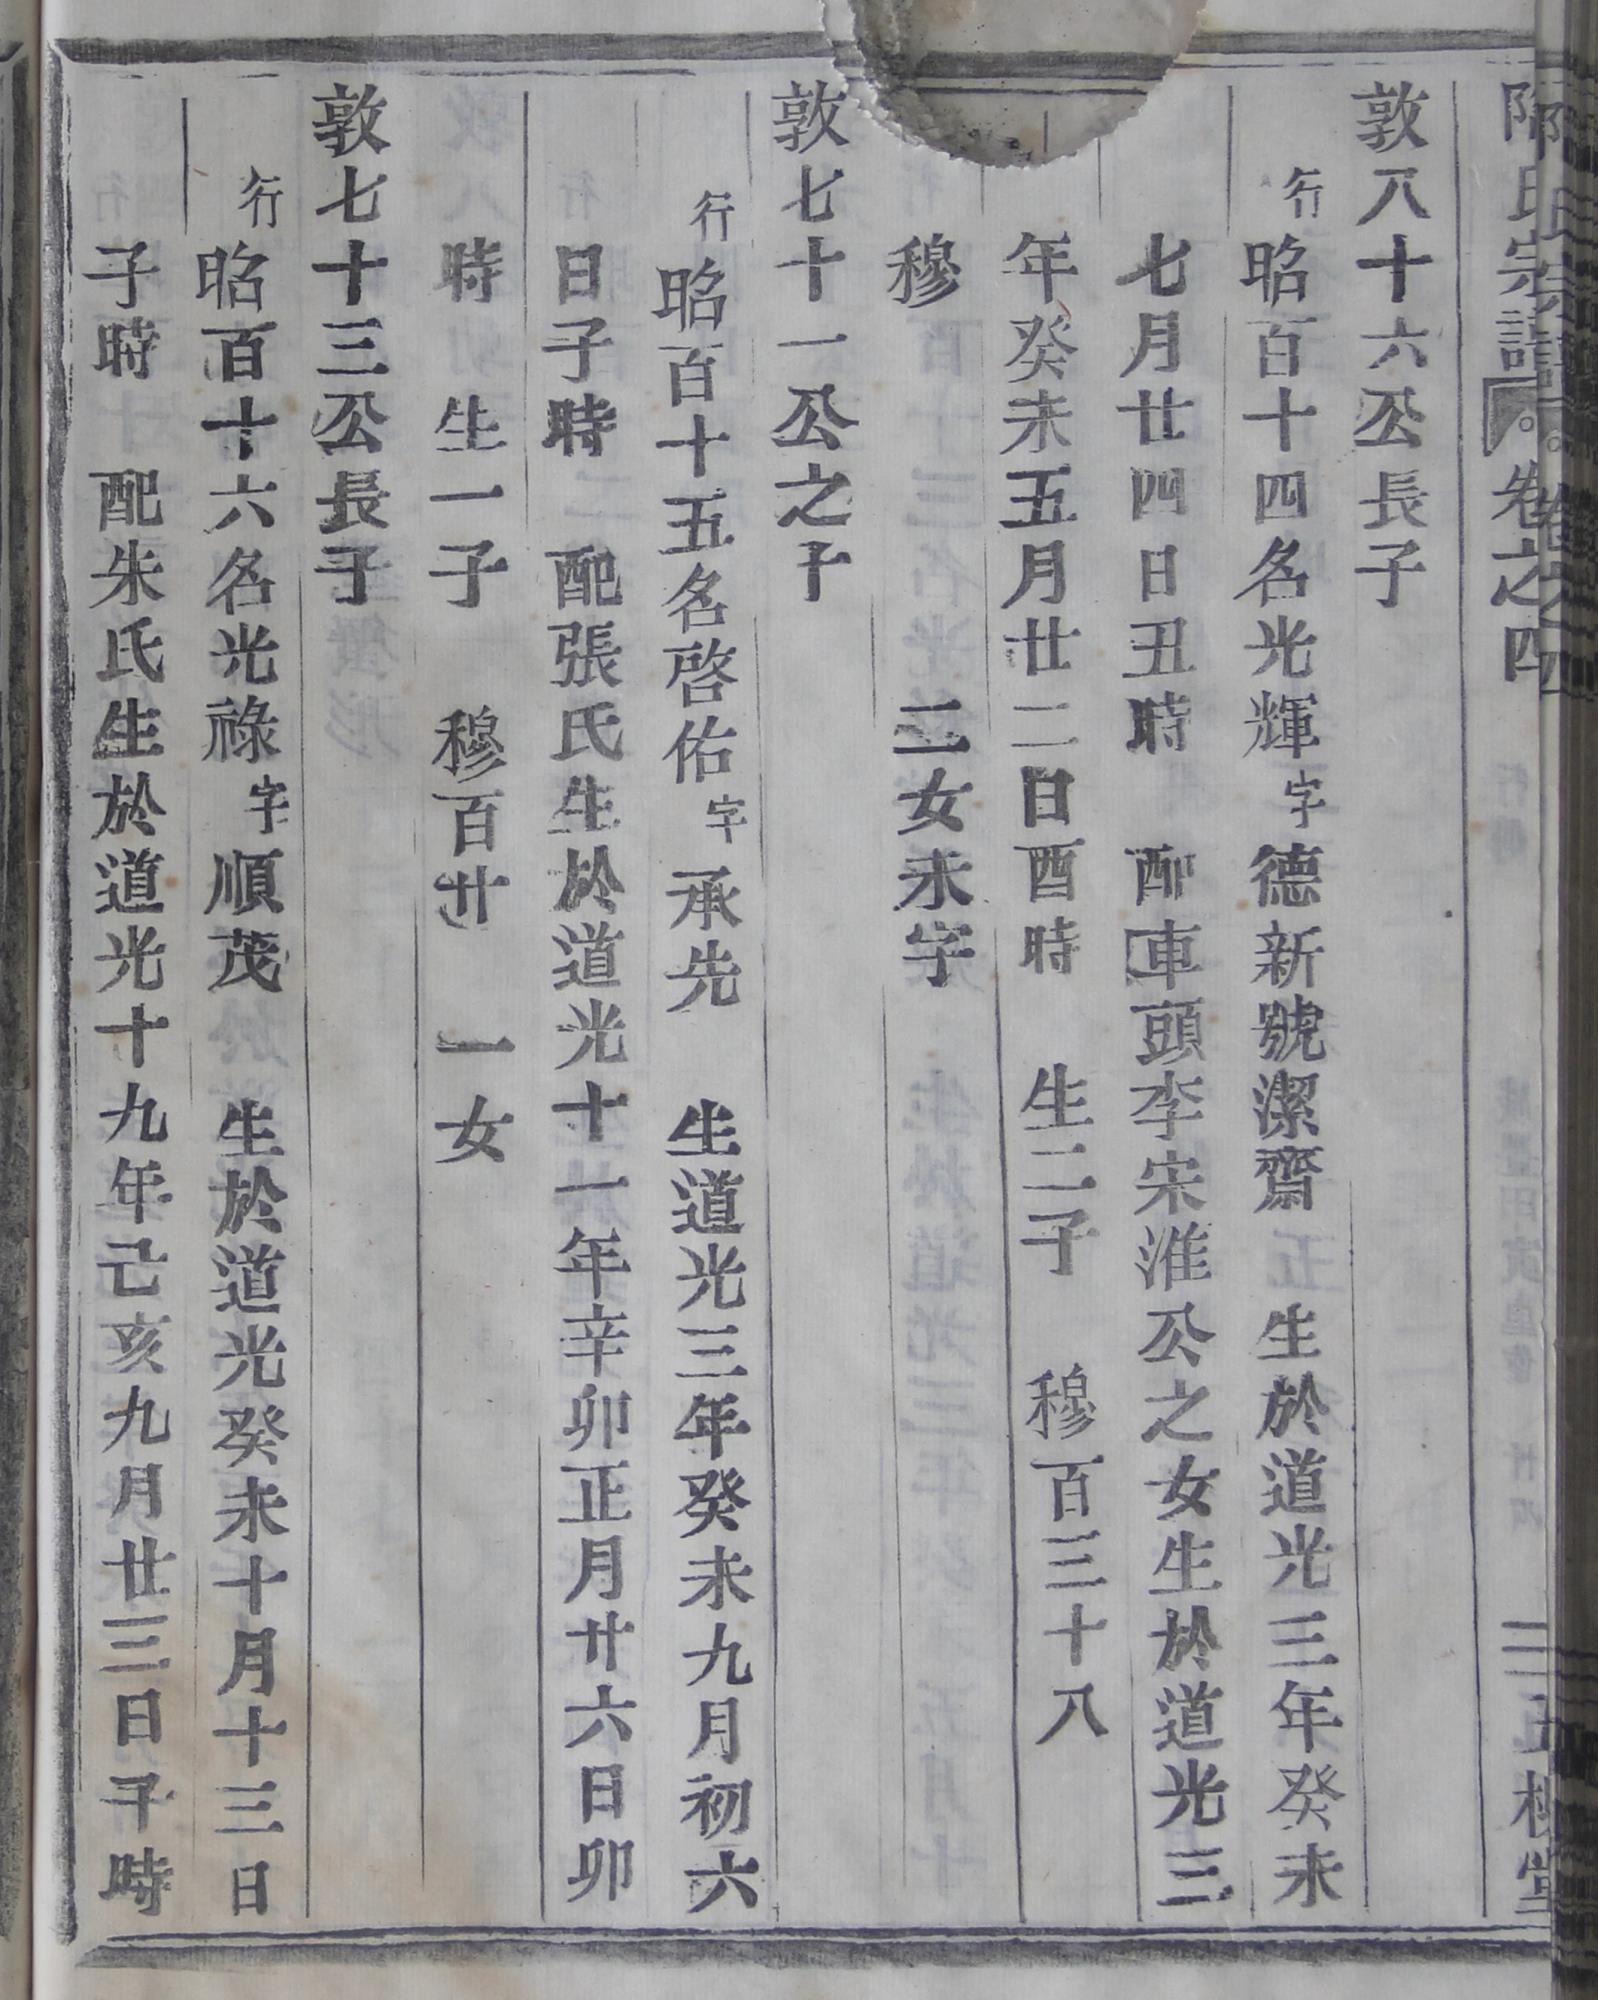 氏宗譜 卷之四
敦八十六公長子
行昭百十四名光輝字德新號潔齋 生於道光三年癸未
七月廿四日丑時 配車頭李宋淮公之女生於道光三
年癸未五月廿二日酉時 生二子 穆百三十八
穆 二女未字
敦七十一公之子
行昭百十五名啓佑字承先 生道光三年癸未九月初六
日子時 配張氏生於道光十一年辛卯正月廿六日卯
時 生一子 穆百廿 一女
敦七十三公長子
行昭百十六名光祿字順茂 生於道光癸未十月十三日
子時 配朱氏生於道光十九年己亥九月廿三日子時